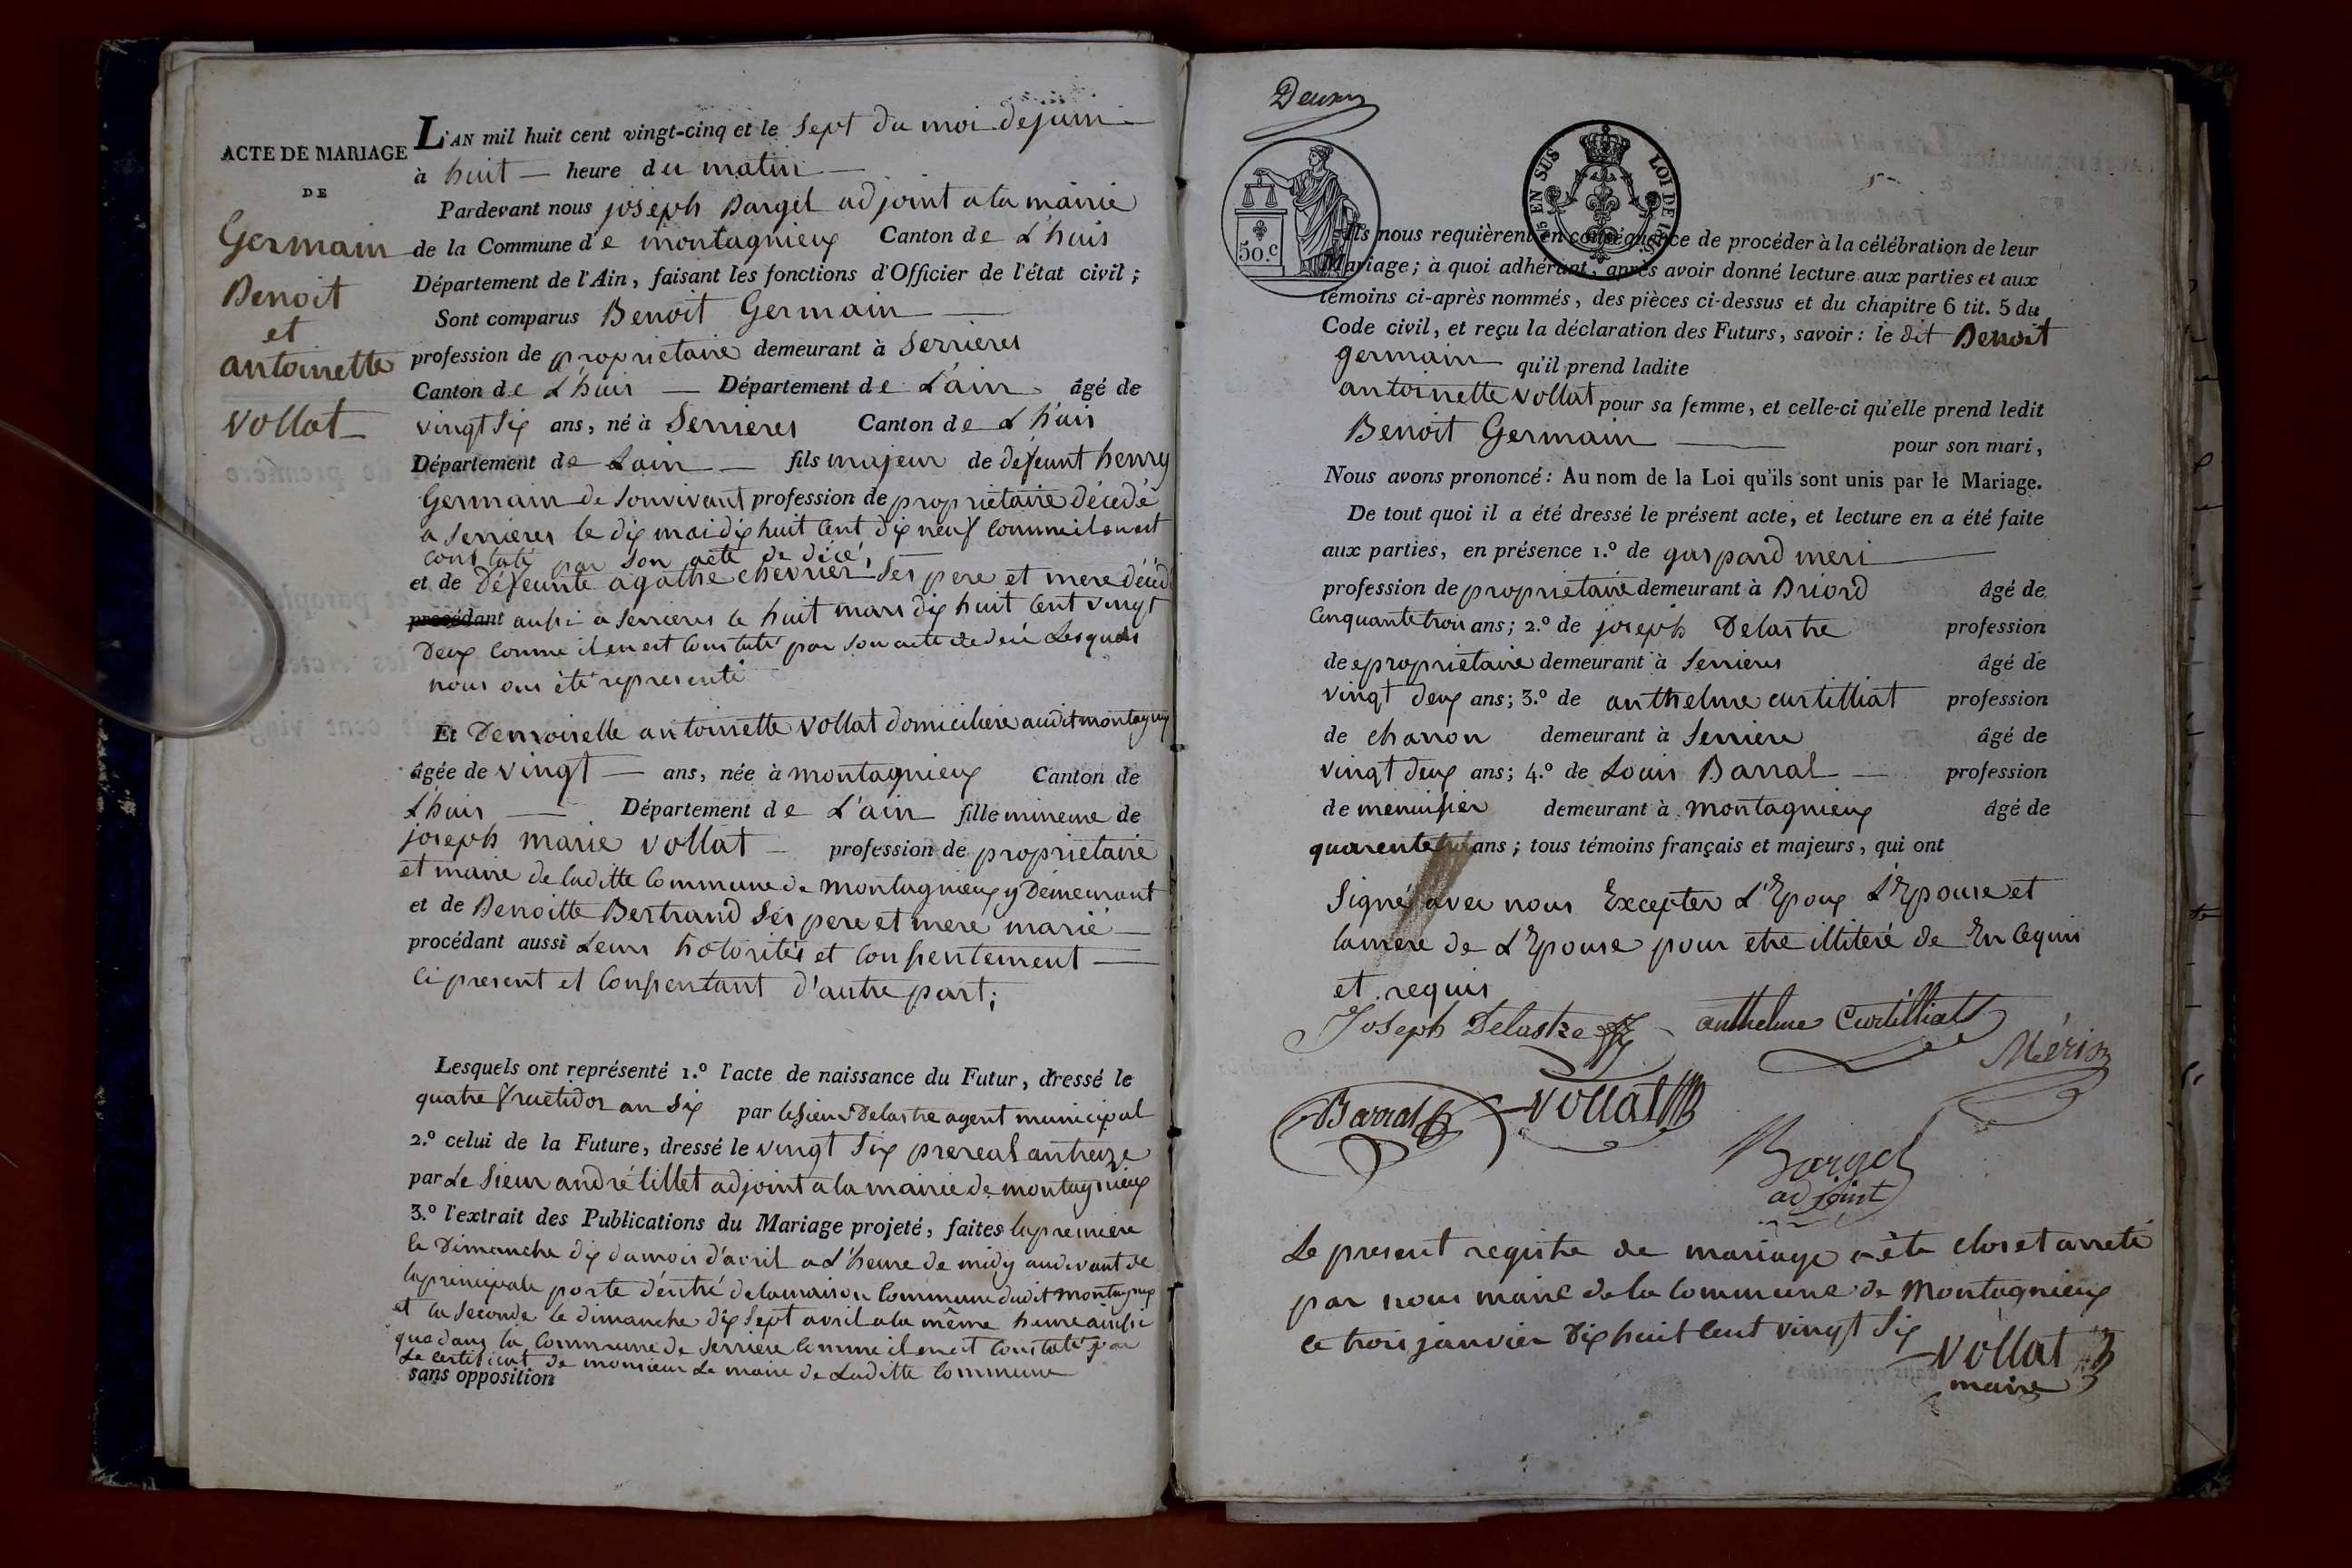 ACTE DE MARIAGE
DE
Germain
Benoit
et
antoinette
vollat
L'AN mil huit cent vingt-cinq et le Sept du moi de juin
à huit heure du matin
Pardevant nous joseph Bargel adjoint a la mairie
de la Commune de montagnieux Canton de L'huis
Département de l'Ain, faisant les fonctions d'Officier de l'état civil;
Sont comparus Benoit Germain
profession de proprietaire demeurant à Serrieres
Canton de L'huis Département de L'ain âgé de
vingt Six ans, né à Serrieres Canton de L'huis
Département de Lain fils majeur de defeunt henry
Germain de Sonvivant profession de proprietaire décédé
a Serrieres le dix mai dix huit Cent dix neuf Comme il en est
constaté par Son acte de décé,
et de Défeunte agathe chevrier Ses pere et mere décédé
procédant aussi a Serrieres le huit mars dix huit Cent vingt
Deux Comme il en est Constaté par Son acte de décé Lesquels
nous ons été representé
Et Demoiselle antoinette vollat domiciliere audit montagnieux
âgée de vingt ans, née à montagnieux Canton de
L'huis Département de L'ain fille mineure de
joseph marie vollat profession de proprietaire
et maire de laditte Commune de montagnieux y Demeurant
et de Benoitte Bertrand Ses pere et mere marié
procédant aussi Leurs hotorités et Consentement
Ci present et Consentant d'autre part;
Lesquels ont représenté 1.º l'acte de naissance du Futur, dressé le
quatre fructidor an Six par le Sieur Delastre agent municipal
2.º celui de la Future, dressé le vingt Six prereal an treize
par Le Sieur andré tillet adjoint a la mairie de montagnieux
3.º l'extrait des Publications du Mariage projeté, faites la premiere
le Dimanche dix du mois d'avril a L'heure de midy au devant de
la principale porte d'éntré de la maison Commune dudit montagnieux
et la Seconde le dimanche dix Sept avril a la même heure ainsi
que dans la Commune de Serriere Comme il en est Constaté par
Le Certificat de monsieur Le maire de Laditte Commune
sans opposition
Deux
50.c
EN SUS
LOI DE
Ils nous requièrent en conséquence de procéder à la célébration de leur
Mariage; à quoi adhérant, après avoir donné lecture aux parties et aux
témoins ci-après nommés, des pièces ci-dessus et du chapitre 6 tit. 5 du
Code civil, et reçu la déclaration des Futurs, savoir: le dit Benoit
germain qu'il prend ladite
antoinette vollat pour sa femme, et celle-ci qu'elle prend ledit
Benoit Germain pour son mari,
Nous avons prononcé: Au nom de la Loi qu'ils sont unis par le Mariage.
De tout quoi il a été dressé le présent acte, et lecture en a été faite
aux parties, en présence 1.º de gaspard meri
profession de proprietaire demeurant à Briord âgé de
Cinquante trois ans; 2.º de joseph Delastre profession
de proprietaire demeurant à Serrieres âgé de
vingt deux ans; 3.º de anthelme curtilliat profession
de charon demeurant à Serriere âgé de
vingt deux ans; 4.º de Louis Barral profession
de menuisier demeurant à montagnieux âgé de
ans; tous témoins français et majeurs, qui ont
Signé avec nous Excepter L'Epoux L'Epouse et
la mere de L'Epouse pour etre illiteré de En Cequis
et requis
Joseph Delastre anthelme Curtilliat
Méri
Barral Vollat
Bargel
adjoint
Le present registre de mariage a été clos et arreté
par nous maire de la Commune de Montagnieux
ce trois janvier dix huit Cent vingt Six
Vollat
maire